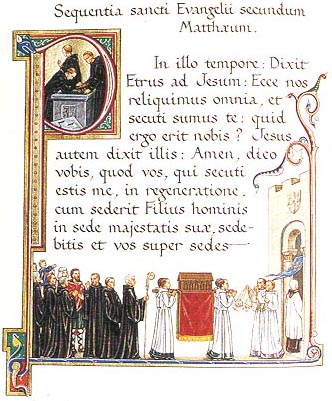 Sequentia sancti Evangelii secundum
Matthæum.
In illo tempore: Dixit
Petrus ad Jesum: Ecce nos
reliquimus omnia, et
secuti sumus te: quid
ergo erit nobis? Jesus
autem dixit illis: Amen, dico
vobis, quod vos, qui secuti
estis me, in regeneratione,
cum sederit Filius hominis
in sede majestatis suæ, sede-
bitis et vos super sedes